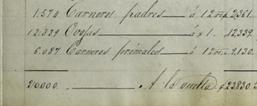 1.574 Carneros padres — á 12 rls 2.361.
12.339 Ovejas — á $ 1. 12339.
6.087 Carneros primales — á 12 rls 9.130.
20000. — A la vuelta $ 23830.2